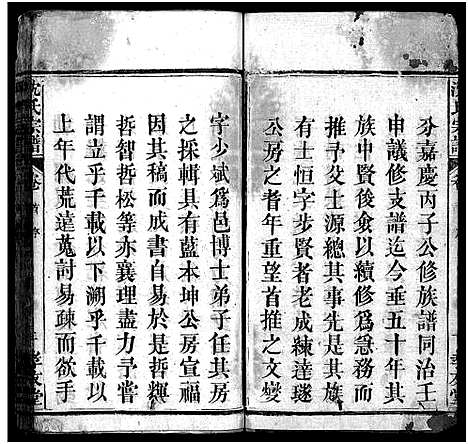 分嘉慶丙子公修族譜同治壬
申議修支譜迄今垂五十年其
族中賢後僉以續修爲急務而
推予父士源總其事先是其族
有士恒字步賢者老成練達遂
公房之耆年重望首推之文燮
字少斌爲邑博士弟子任其房
之採輯具有藍本坤公房宣福
因其稿而成書自易於是哲興
哲智哲松等亦襄理盡力予嘗
謂立乎千載以下溯乎千載以
上年代荒遠蒐討易疎而欲手
沈氏宗譜
卷首